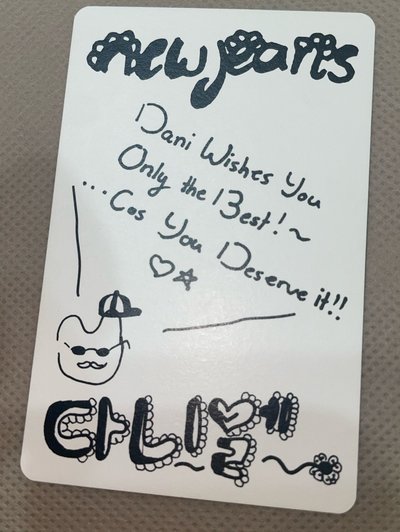 newjeans
Dani Wishes You
Only the Best!~
...Cos You Deserve it!!
다니엘